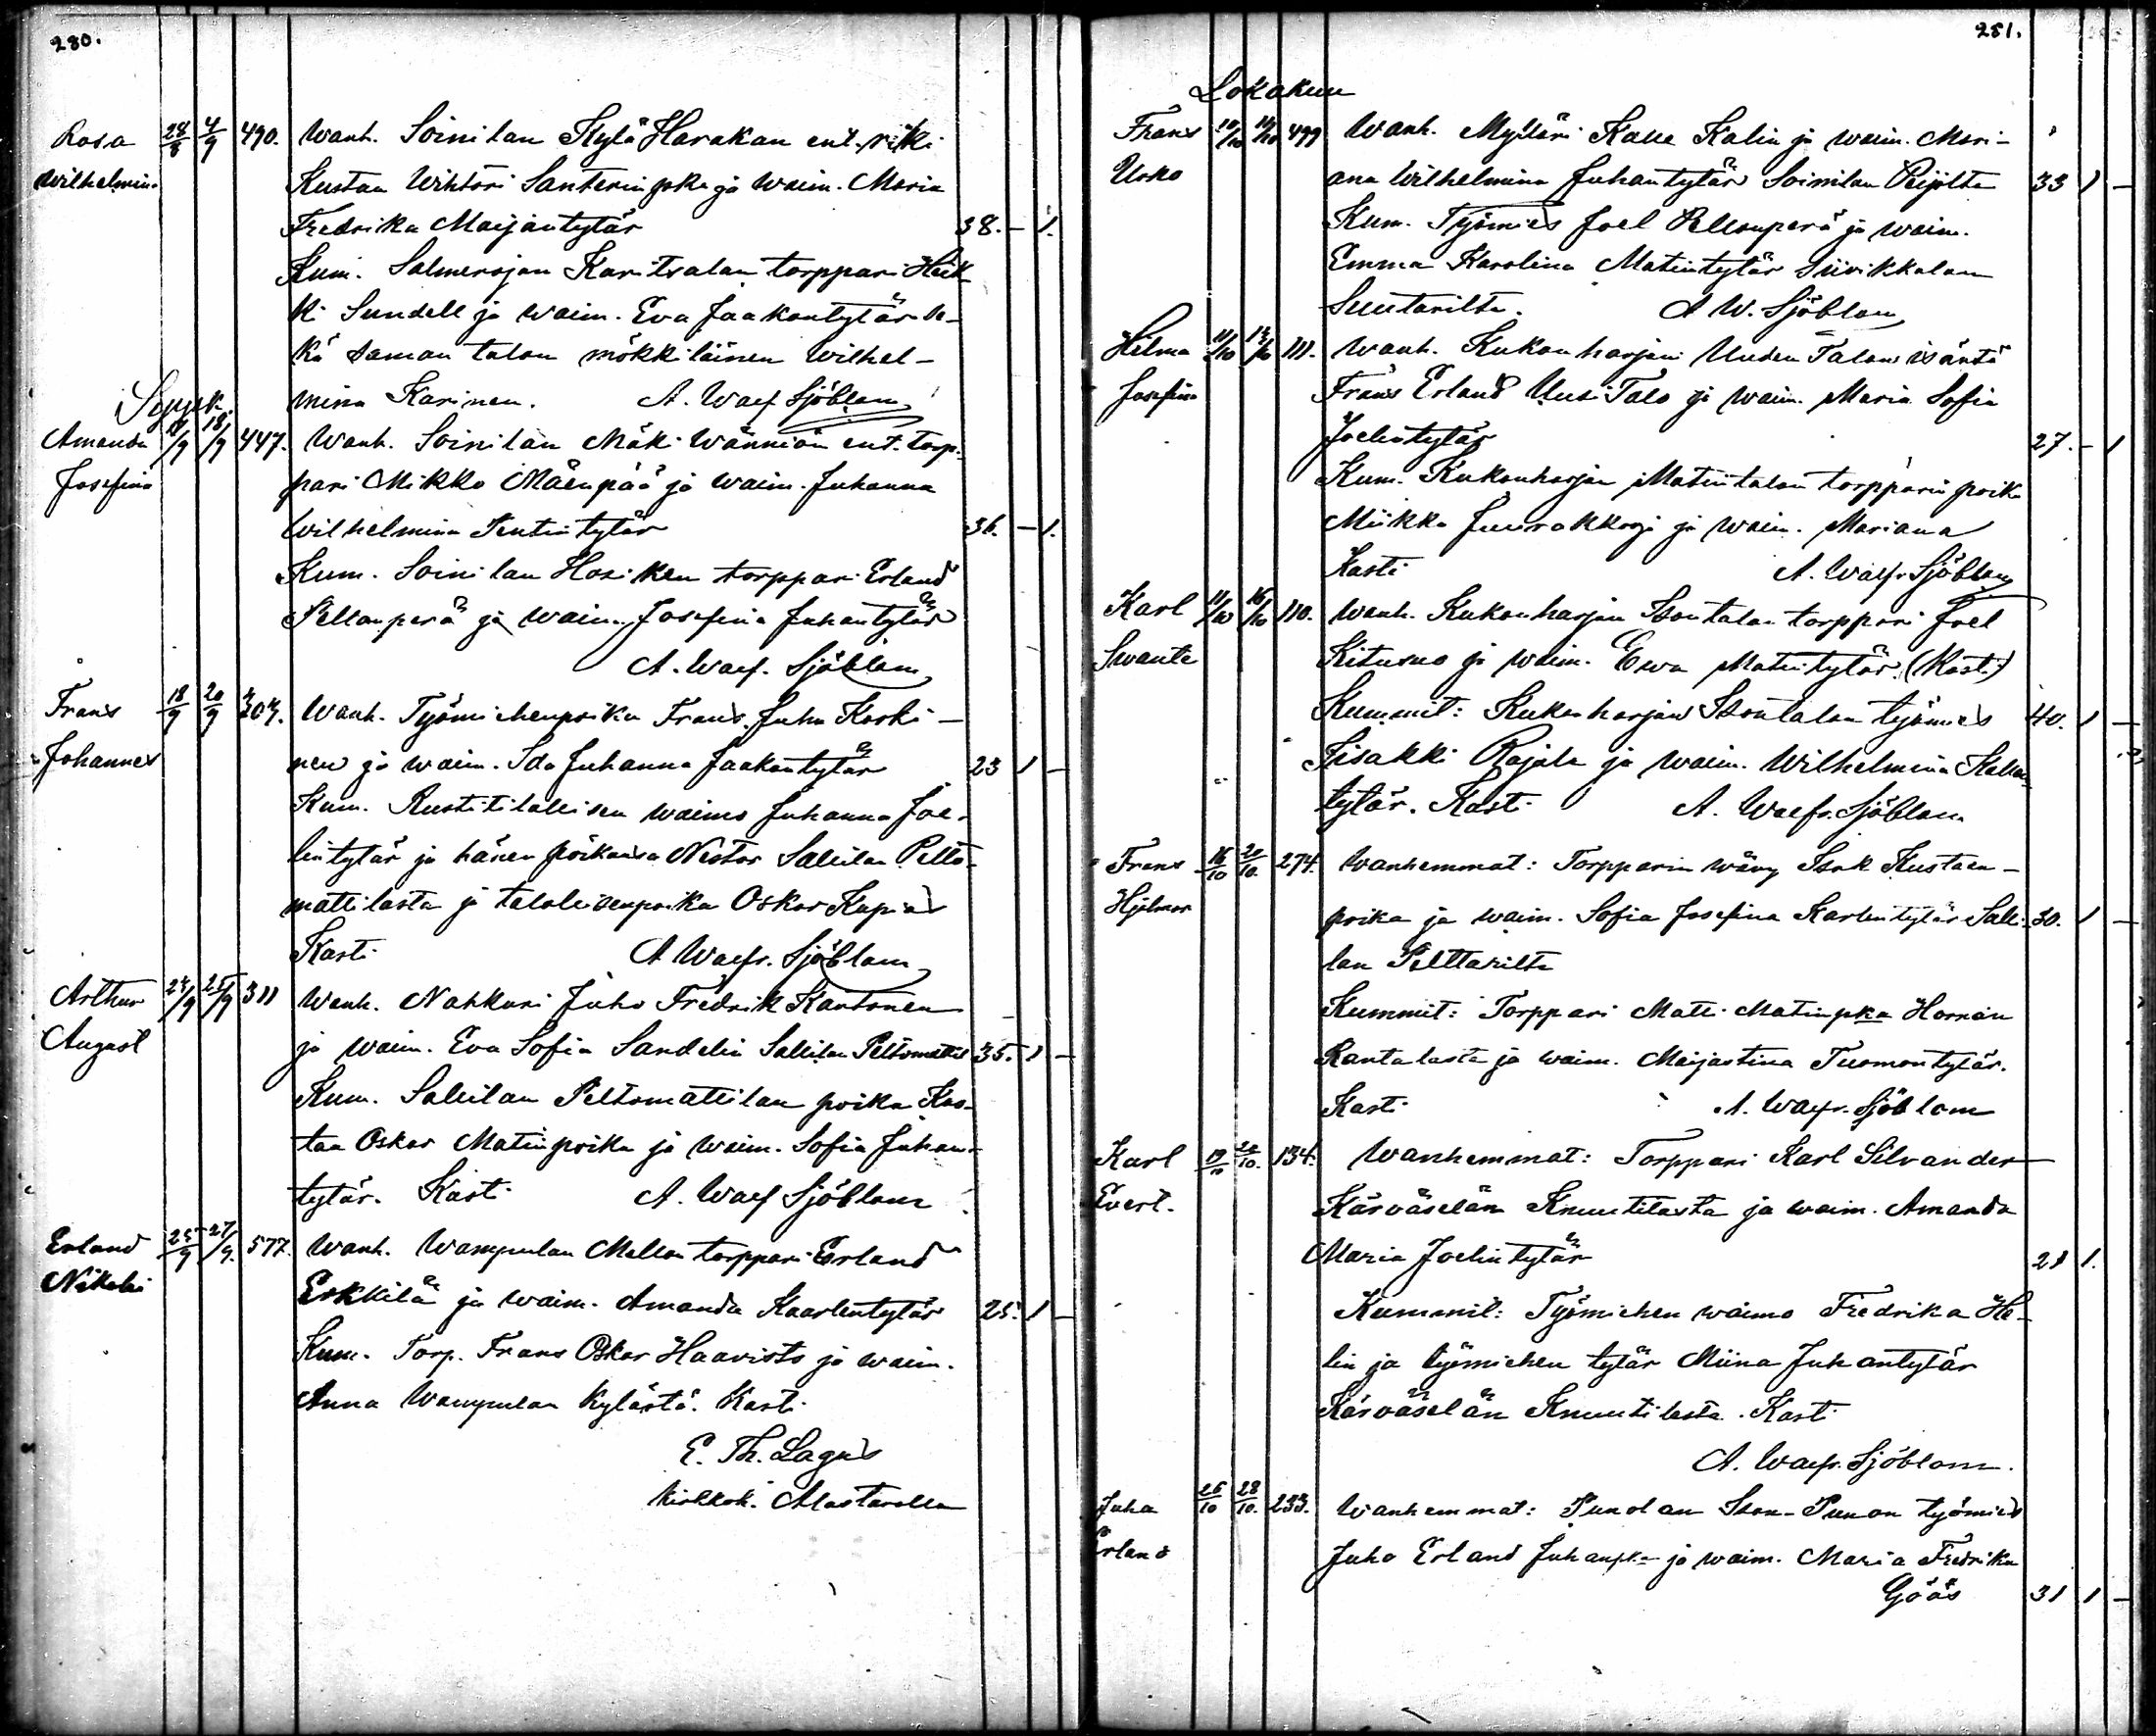 280.
Rosa 28/8 4/9 490. Wanh. Soinilan Kylä Harakan ent.
Wilhelmina Kustaa Wihtori Santerinpka ja waim. Maria
Fredrika Maijantytär 38. — 1.
Kum. Salmenojan Karitsalan torppari Heik-
ki Sundell ja waim. Eva Jaakontytär se-
kä saman talon mökkiläinen Wilhel-
mina Karinen. A. Waef Sjöblom
Syysk.
Amanda 18/9 447. Wanh. Soinilan Mäki Wänniön ent. torp-
Josefina pari Mikko Mäenpää ja waim. Juhanna
Wilhelmina Penttintytär 36. — 1.
Kum. Soinilan Hosiken torppari Erland
Pellonperä ja waim. Josefina Juhantytär
A. Waef. Sjöblom
Frans 18/9 20/9 303. Wanh. Työmiehenpoika Frans Juha Koski-
Johannes nen ja waim. Ida Juhanna Jaakontytär 23 1 —
Kum. Rustitilallisen waimo Juhanna Joe-
lintytär ja hänen poikansa Nestor Sallilan Pelto-
mattilasta ja talolisenpoika Oskar Kapias
Kasti A Waefr. Sjöblom
Arthur 24/9 25/9 311 Wanh. Nahkuri Juho Fredrik Kantonen
August ja waim. Eva Sofia Sandelin Sallilan Peltomattil 35. 1 —
Kum. Sallilan Peltomattilan poika Kus-
taa Oskar Matinpoika ja waim. Sofia Juhan-
tytär. Kasti A. Waef Sjöblom
Erland 25/9 27/9. 577. Wanh. Wampulan Mellon torppari Erland
Nikolai Erkkilä ja waim. Amanda Kaarlentytär 25. 1 —
Kum. Torp. Frans Oskar Haavisto ja waim.
Anna Wampulan kylästä. Kasti
E. Th. Lagus
kirkkoh. Alastarolla
281.
Lokakuu
Frans 10/10 499 Wanh. Mylläri Kalle Kalin ja waim. Mari-
Urko ana Wilhelmina Juhantytär Soinilan 33 1 —
Kum. Työmies Joel Pellonperä ja waim.
Emma Karolina Matintytär Siivikkalan
Suutarilta. A W. Sjöblom
Hilma 11/10 111. Wanh. Kukonharjan Uuden Talon isäntä
Josefina Frans Erland Uusi Talo ja waim. Maria Sofia
Joelintytär 27. — 1
Kum. Kukonharjan Matintalon torpparin poika
Miikka ja waim. Mariana
Kasti A. Waefr. Sjöblom
Karl 11/10 16/10 110. Wanh. Kukonharjan Isontalon torppari Joel
Swante Kitusuo ja waim. Ewa Matintytär. (Kasti)
Kummit: Kukonharjan Isontalon työmies 40. 1 —
Iisakki Rajala ja waim. Wilhelmina Kallen
tytär. Kasti A. Waefr. Sjöblom
Frans 16/10 20/10. 274. Wanhemmat: Torpparin wävy Isak Kustaan-
Hjalmar poika ja waim. Sofia Josefina Karlentytär Salli- 30. 1 —
lan Pelttarilta
Kummit: Torppari Matti Matinpka Hannan
Rantalasta ja waim. Maijastina Tuomontytär.
Kasti A. Waefr. Sjöblom
Karl 19/10 22/10. 134. Wanhemmat: Torppari Karl Silvander
Evert. Kärväselän Knuutilasta ja waim. Amanda
Maria Joelintytär 28 1.
Kummit: Työmiehen waimo Fredrika He-
lin ja työmiehen tytär Miina Juhantytär
Kärväselän Knuutilasta. Kasti
A. Waefr. Sjöblom.
Juha 26/10 28/10. 233. Wanhemmat: Punolan Ison-Punon työmies
Erland Juho Erland Juhanpka ja waim. Maria Fredrika
Göös 31 1 —